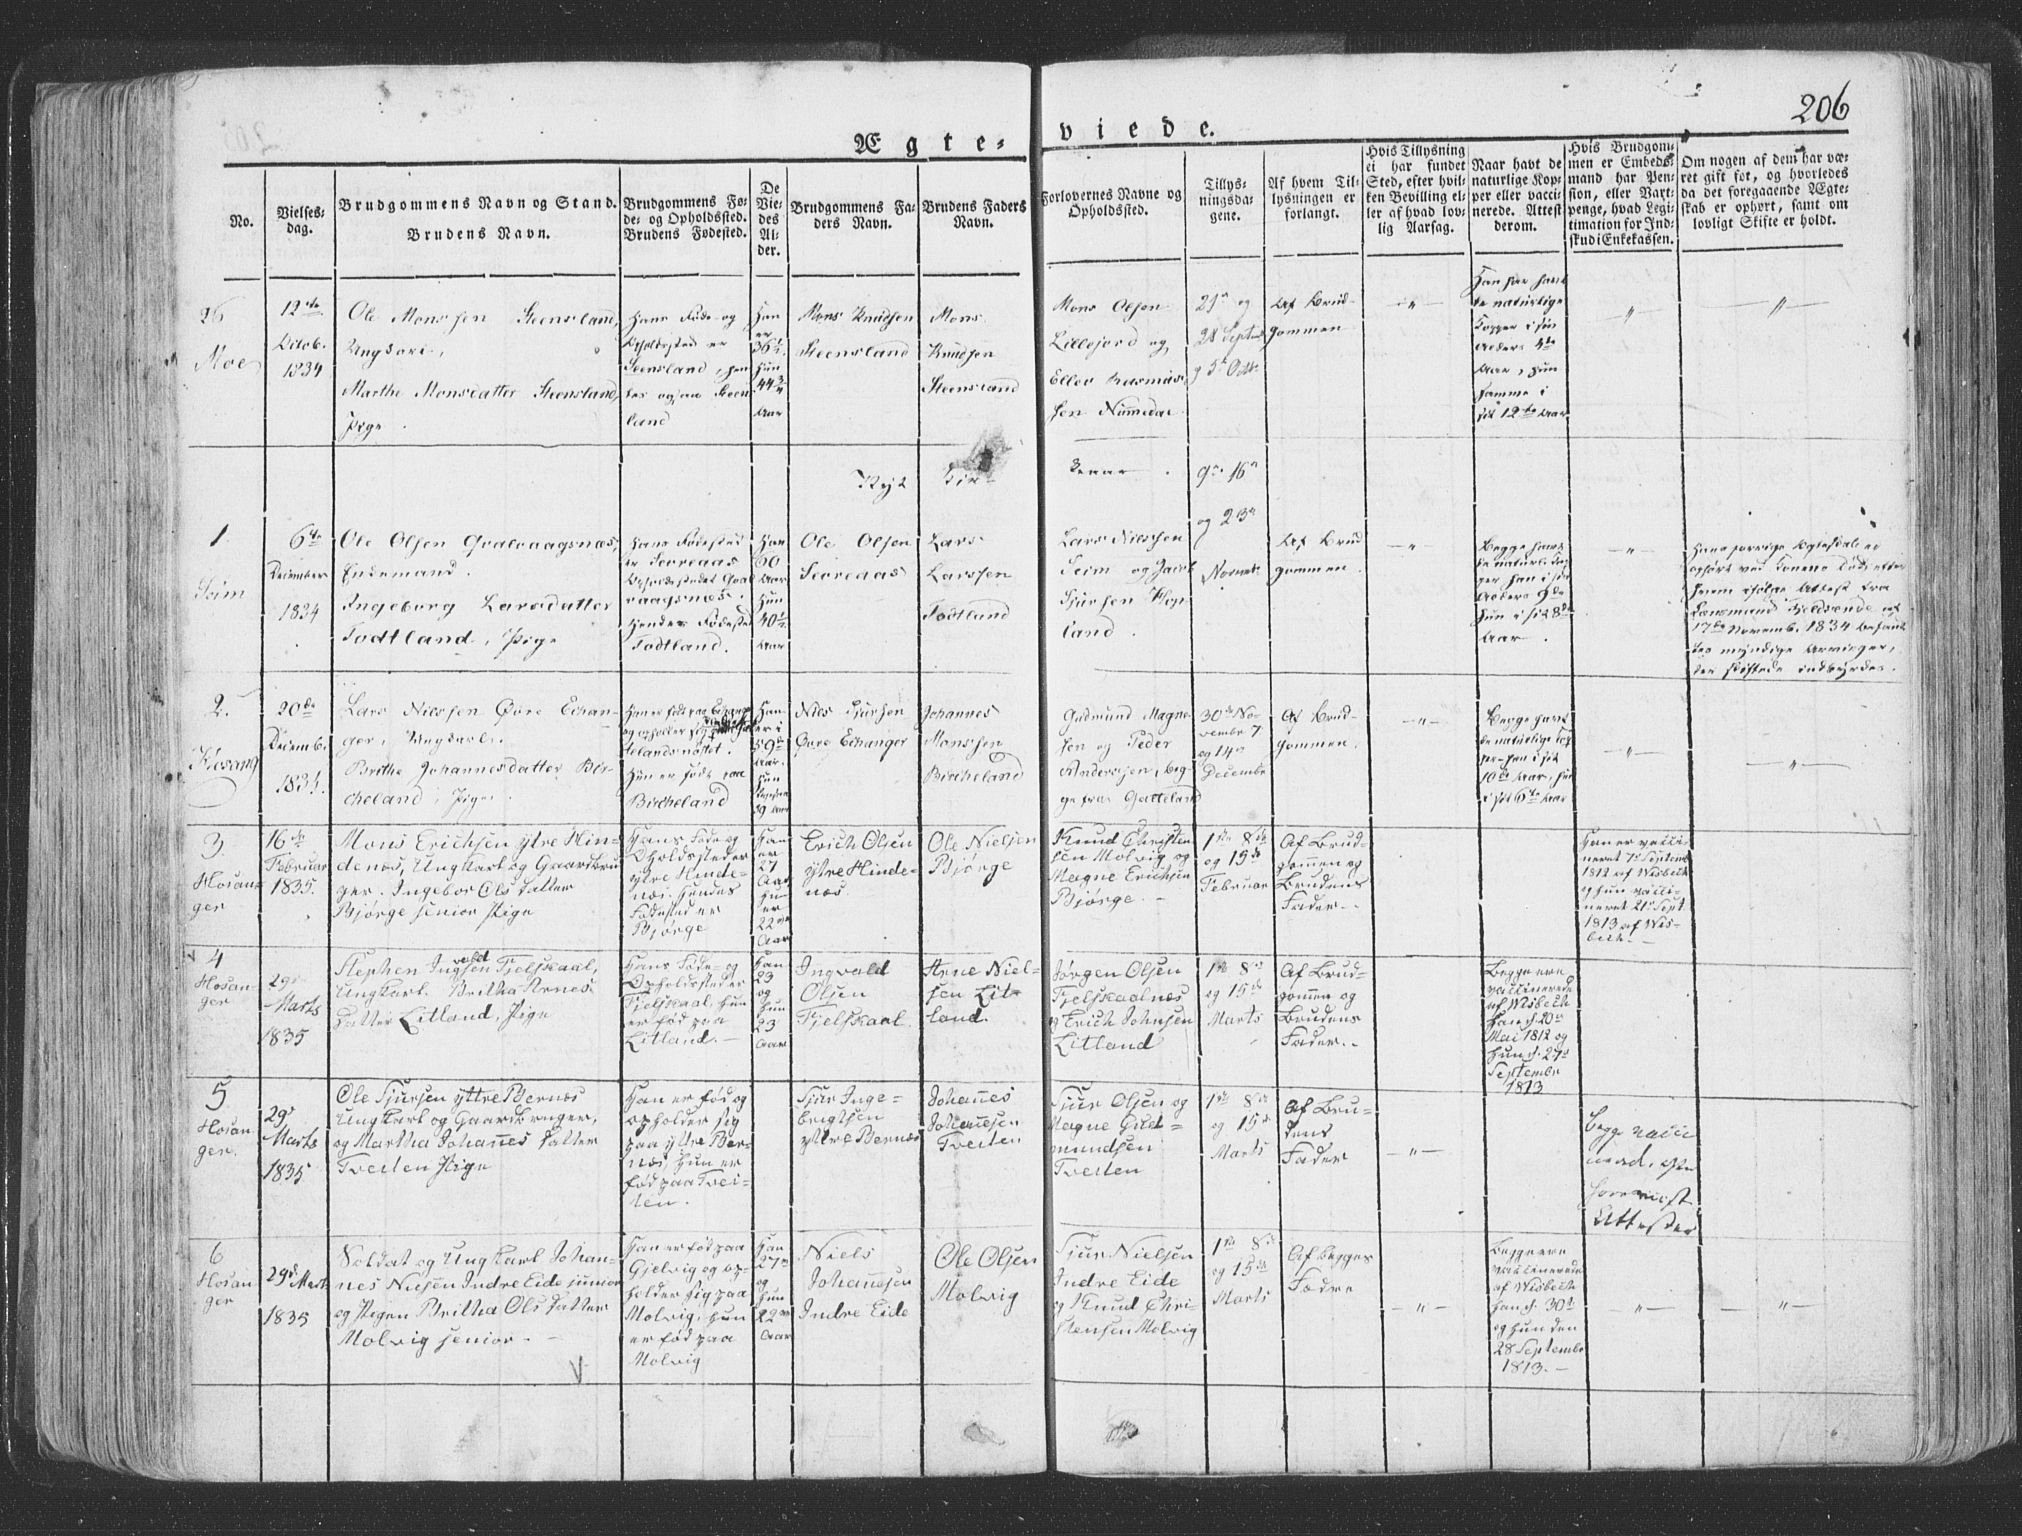 206
Ægte-viede.
No.
Vielses-
dag.
Brudgommens Navn og Stand.
Brudens Navn.
Brudgommens Fø-
de- og Opholdssted.
Brudens Fødested.
De
Vie-
des
Al-
der.
Brudgommens Fa-
ders Navn.
Brudens Faders
Navn.
Forlovernes Navne og
Opholdssted.
Tillys-
ningsda-
gene.
Af hvem Til-
lysningen er
forlangt.
Hvis Tillysning
ei har fundet
Sted, efter hvil-
ken Bevilling el-
ler af hvad lov-
lig Aarsag.
Naar havt de
naturlige Kop-
per eller vacci-
nerede. Attest
derom.
Hvis Brudgom-
men er Embeds-
mand har Pen-
sion, eller Vart-
penge, hvad Legi-
timation for Ind-
skud i Enkekassen.
Om nogen af dem har væ-
ret gift før, og hvorledes
da det foregaaende Ægte-
skab er ophørt, samt om
lovligt Skifte er holdt.
26
Moe
12te
Octob.
1834
Ole Monssen Steensland,
Ungkarl,
Marthe Monsdatter Steensland,
Pige.
Hans Føde- og
Opholdssted er
Steensland, hen-
des og paa Steens-
land
Han
er
36½
hun
44¾
Aar
Mons Knudsen
Steensland
Mons
Knudsen
Steensland
Mons Olsen
Lillefjord og
Elles Rasmus-
sen Numedal
21de og
28 Septem.
og 5te Octb.
Af Brud-
gommen
"
Han har havt
de naturlige
Kopper i sin
Alders 4de
Aar, hun
samme i
sit 12te Aar
"
"
Nyt Kir-
keaar.
9de 16de
og 23de
Novemb.
1.
Seim
6te
December
1834
Ole Olsen Qvalvaagsnæs,
Enkemand.
Ingeborg Larsdatter
Todtland, Pige
Hans Fødested
er Soreaas
Opholdsstedet Qval-
vaagsnæs.
Hendes Fødested
Todtland.
Han
60
Aar
Hun
40½
Aar
Ole Olsen
Soreaas
Lars
Larssen
Todtland
Lars Nilssen
Seim og Jacob
Sjursen Hop-
land.
Af Brud
gommen.
"
Begge havt
de naturlige Kop-
per, han i sit
Alders 9de
hun i sit 8de
Aar.
"
Hans forrige Ægteskab er
ophørt ved Konens Død, efter
hvem ifølge Attest fra
Lensmand Fjeldsende af
17de Novemb. 1834 befand-
tes myndige Arvinger,
der skiftede indbyrdes.
2.
Hosang
20de
Decemb.
1834
Lars Nilssen Øvre Echan-
ger, Ungkarl.
Brithe Johannesdatter Bir-
cheland, Pige.
Han er født paa Echanger
og opholder sig paa
telandsnæset.
Hun er født paa
Bircheland
Han
er i
59de
Aar.
Hun
39 Aar
Nils Sjursen
Øvre Echanger
Johannes
Monssen
Bircheland
Gudmund Magne-
sen og Peder
Anderssen, Beg-
ge fra Gatteland
30te No-
vembr 7
og 14de
Decembr
Af Brud-
gommen.
"
Begge havt
de naturlige Kop-
per, han i sit
10de Aar, hun
i sit 6te Aar
"
"
3.
Hosan-
ger
16de
Februar
1835.
Mons Erichsen ytre Hin-
denæs, Ungkarl og Gaardbru-
ger. Ingebor Ols Datter
Bjørge senior Pige
Hans Føde og
Opholdssted er
ytre Hinde-
næs. Hendes
Fødested er
Bjørge
Han
er
27
Aar
hun
er
22
Aar
Erich Olsen
ytre Hinde-
næs.
Ole Nielsen
Bjørge
Knud Christen
sen Molvig og
Magne Erichsen
Bjørge.
1ste 8de
og 15de
Februar
Af Brud-
gommen og
Brudens
Fader.
Han er vacci-
neret 7de Septemb
1812 af Wisbech
og hun vacci-
neret 21de Sept.
1813 af Wis-
bech.
4
Hosan-
ger
29de
Marts
1835
Stephen Ingvald
sen Fjelskaal,
Ungkarl. Britha Arnes
Datter Litland, Pige
Hans Føde- og
Opholdssted er
Fjelskaal, hun
er fød paa
Litland.
Han
23
og
hun
23
Aar
Ingvald
Olsen
Fjelskaal.
Arne Niel-
sen Lit-
land.
Jørgen Olsen
Fjelskaalnæs
og Erich Johnsen
Litland
1ste 8de
og 15de
Marts
Af Brud-
gommen og
Brudens
Fader.
Begge ere
vaccinerede
af Wisbech
han d. 20de
Mai 1812 og
hun d. 27de
Septembr
1813
5
Hosan-
ger.
29de
Marts
1835
Ole Sjursen yttre Bernæs
Ungkarl og Gaardbruger,
og Martha Johannes Datter
Tveiten Pige
Han er fød og
opholder sig
paa yttre Ber-
næs, hun er
fød paa Tvei-
ten.
Sjur Inge-
brigtsen
yttre Bernæs
Johannes
Johannesen
Tveiten
Sjur Olsen og
Magne Gud-
mundsen
Tveiten
1ste 8de
og 15de
Marts
Af Bru-
dens
Fader
"
Begge vacci
nered, efter
foreviist
Attester
6
Hosan-
ger
29de Marts
1835
Soldat og Ungkarl Johan-
nes Nielsen Indre Eide junior
og Pigen Britha Ols Datter
Molvig senior.
Han er fød paa
Gjelvig og op-
holder sig paa
Molvig, hun
er fød paa
Molvig
Han
27
og
hun
22
Aar
Niels
Johannesen
Indre Eide
Ole Olsen
Molvig
Sjur Nielsen
Indre Eide
og Knud Chri-
stensen Molvig
1ste 8de
og 15de
Marts
Af begges
Fædre
"
Begge ere
vaccinerede
af Wisbech
han d. 30te
og hun den
28 Septembr
1813.
"
"